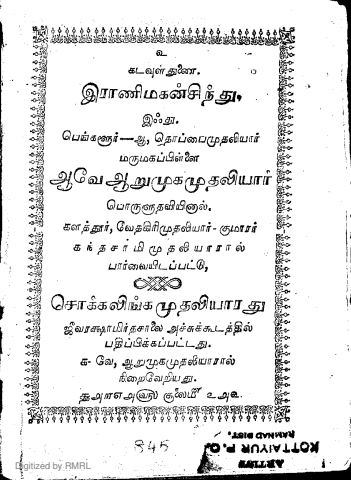 உ
கடவுள்துணை.
இராணிமகன்சிந்து,
இஃது.
பெங்களூர்—ஆ, தொப்பைமுதலியார்
மருமகப்பிள்ளை
ஆவே ஆறுமுகமுதலியார்
பொருளுதவியினால்.
களத்தூர், வேதகிரிமுதலியார்-குமாரர்
கந்தசாமிமுதலியாரால்
பார்வையிடப்பட்டு,
சொக்கலிங்கமுதலியாரது
ஜீவரக்ஷாமிர்தசாலை அச்சுக்கூடத்தில்
பதிப்பிக்கப்பட்டது.
க- வே, ஆறுமுகமுதலியாரால்
நிறைவேறியது.
945
KOTTAIYUR P. O.
RAMNAD DIST.
Digitized by RMRL